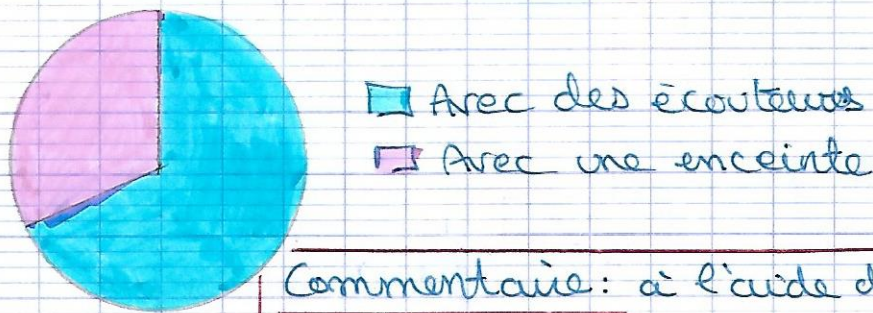 Avec des écouteurs
Avec une enceinte
Commentaire: à l'aide d